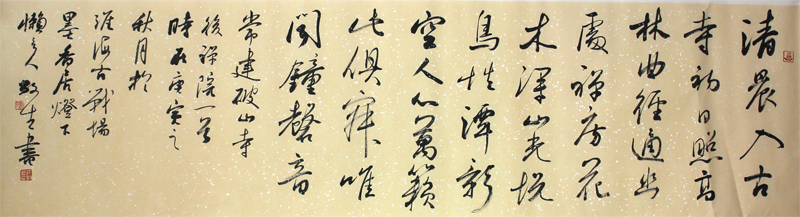 清晨入古
寺初日照高
林曲徑通幽
處禪房花
木深山光悦
鳥性潭影
空人心萬籟
此俱寂唯
聞鐘磬音
常建破山寺
後禪院一首
時在庚寅之
秋月於
淮海古戰場
墨香居燈下
懶人生書